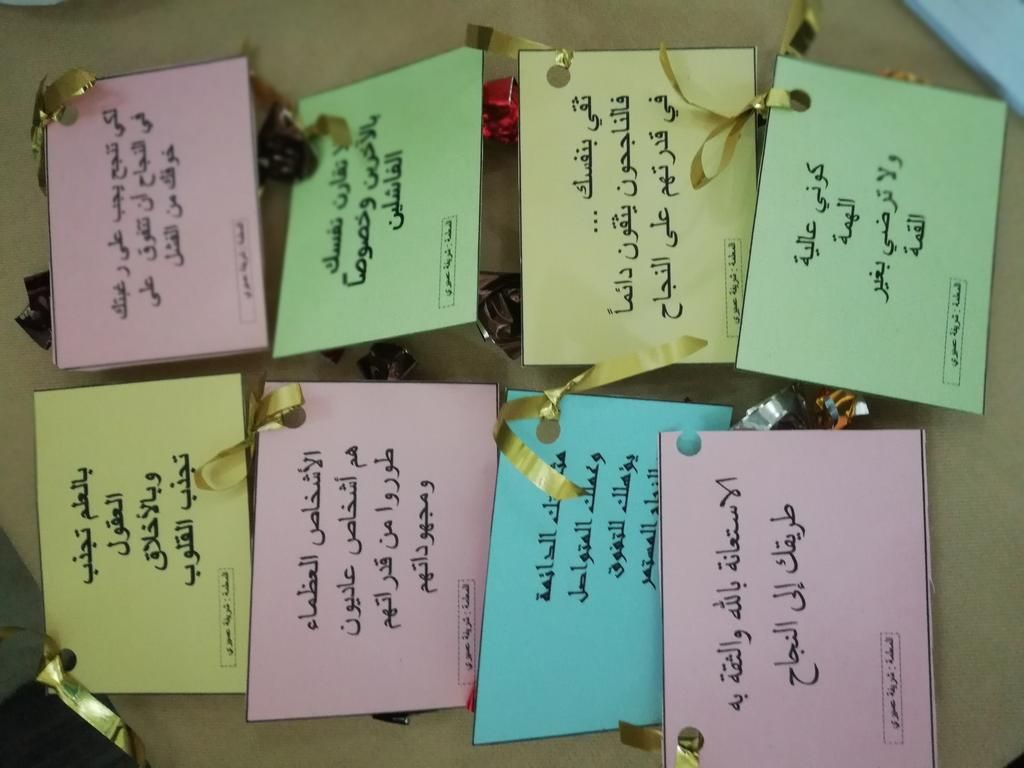 لكي تنجح يجب على رغبتك
في النجاح أن تتفوق على
خوفك من الفشل
المعلمة : شريفة
لا تقارن نفسك
بالآخرين وخصوصاً
الفاشلين
المعلمة : شريفة
ثقي بنفسك ...
فالناجحون يثقون دائماً
في قدرتهم على النجاح
المعلمة : شريفة
كوني عالية
الهمة
ولا ترضي بغير
القمة
المعلمة : شريفة
بالعلم تجذب
العقول
وبالأخلاق
تجذب القلوب
المعلمة : شريفة
الأشخاص العظماء
هم أشخاص عاديون
طوروا من قدراتهم
ومجهوداتهم
المعلمة : شريفة
الدائمة
وعملك المتواصل
يؤهلك للتفوق
المستمر
الاستعانة بالله والثقة به
طريقك إلى النجاح
المعلمة : شريفة